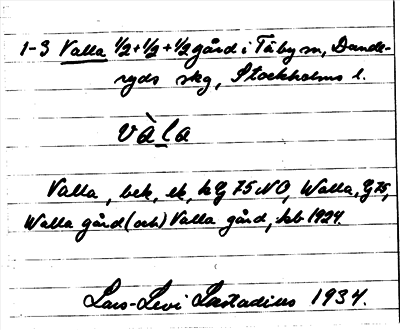 1-3 Valla 1/2+1/2+1/2 gård i Täby sn, Dande-
ryds skg, Stockholms l.
vàla
Valla, bek, ek, kG 75 NO, Walla, G 75,
Walla gård (och) Valla gård, kb 1924.
Lars-Levi Læstadius 1934.